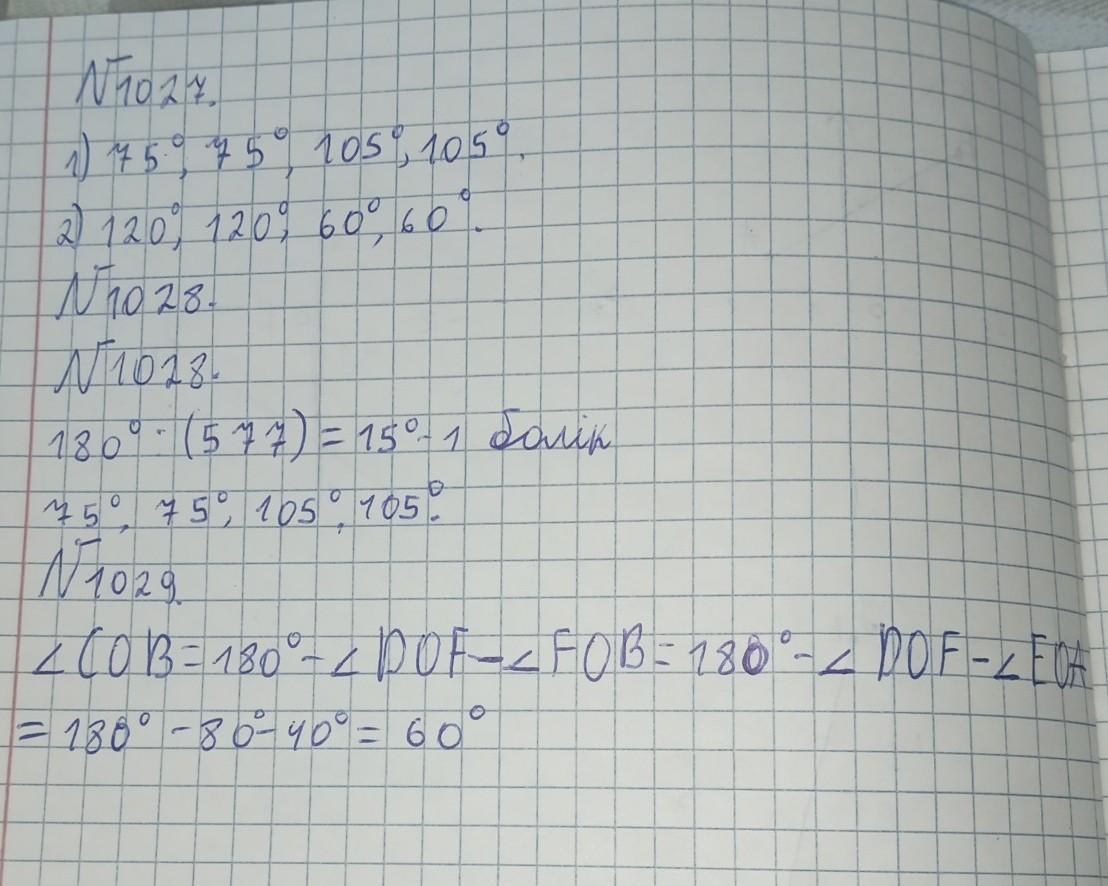 N1027.
1) 75°, 75°, 105°, 105°.
2) 120°, 120°, 60°, 60°.
N1028.
N1028.
180° · (577) = 15° - 1 бөлік
75°, 75°, 105°, 105°.
N1029.
∠COB = 180° - ∠DOF - ∠FOB = 180° - ∠DOF - ∠EOA
= 180° - 80° - 40° = 60°